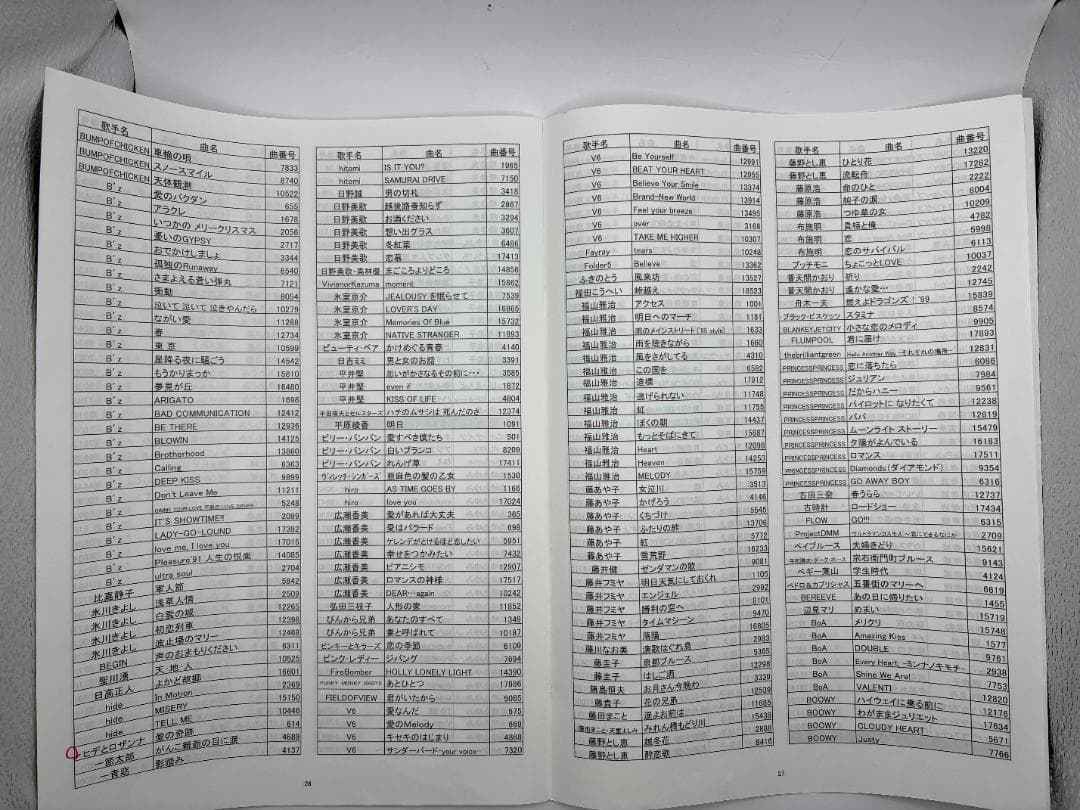 歌手名 曲名 曲番号
BUMPOFCHICKEN 車輪の唄 7833
BUMPOFCHICKEN スノースマイル 8740
BUMPOFCHICKEN 天体観測 10522
B'z 愛のバクダン 655
B'z アラクレ 1678
B'z いつかの メリークリスマス 2056
B'z 憂いのGYPSY 2717
B'z おでかけしましょ 3344
B'z 孤独のRunaway 6540
B'z さまよえる蒼い弾丸 7121
B'z 衝動 8054
B'z 泣いて 泣いて 泣きやんだら 10279
B'z ながい愛 11288
B'z 春 12734
B'z 東 京 10599
B'z 星降る夜に騒ごう 14542
B'z もうかりまっか 15810
B'z 夢見が丘 16480
B'z ARIGATO 1698
B'z BAD COMMUNICATION 12412
B'z BE THERE 12936
B'z BLOWIN 14125
B'z Brotherhood 13860
B'z Calling 6363
B'z DEEP KISS 9899
B'z Don't Leave Me 11211
B'z 5248
B'z IT'S SHOWTIME!! 2099
B'z LADY-GO-LOUND 17392
B'z love me, I love you 17015
B'z Pleasure'91 人生の悦楽 14085
B'z ultra soul 2704
比嘉静子 軍人節 5842
氷川きよし 浅草人情 2509
氷川きよし 白雲の城 12265
氷川きよし 初恋列車 12398
氷川きよし 波止場のマリー 12468
BEGIN 声のおまもりください 6311
聖川湧 天・地・人 10525
日高正人 よかど故郷 16601
hide In Motion 2369
hide MISERY 15150
hide TELL ME 10446
ヒデとロザンナ 愛の奇跡 614
一節太郎 がんこ親爺の目に涙 4689
一青窈 影踏み 4137
歌手名 曲名 曲番号
hitomi IS IT YOU? 1965
hitomi SAMURAI DRIVE 7150
日野誠 男の切札 3418
日野美歌 越後路春知らず 2867
日野美歌 お酒ください 3294
日野美歌 想い出グラス 3607
日野美歌 冬紅葉 6486
日野美歌 恋慕 17413
日野美歌・高林優 まごころよりどころ 14856
VivianorKazuma moment 15862
氷室京介 JEALOUSYを眠らせて 7539
氷室京介 LOVER'S DAY 16865
氷室京介 Memories Of Blue 15732
氷室京介 NATIVE STRANGER 11893
ビューティ・ペア かけめぐる青春 4140
日吉ミミ 男と女のお話 3391
平井堅 思いがかさなるその前に… 3585
平井堅 even if 1872
平井堅 KISS OF LIFE 4804
平田隆夫とセルスターズ ハチのムサシは 死んだのさ 12374
平原綾香 明日 1091
ビリー・バンバン 愛すべき僕たち 501
ビリー・バンバン 白いブランコ 8209
ビリー・バンバン れんげ草 17411
ヴィレッヂ・シンガーズ 亜麻色の髪の乙女 1530
hiro AS TIME GOES BY 1166
hiro love you 17024
広瀬香美 愛があれば大丈夫 365
広瀬香美 愛はバラード 698
広瀬香美 ゲレンデがとけるほど恋したい 5951
広瀬香美 幸せをつかみたい 7432
広瀬香美 ピアニシモ 12907
広瀬香美 ロマンスの神様 17517
広瀬香美 DEAR…again 10242
弘田三枝子 人形の家 11852
ぴんから兄弟 あなたのすべて 1349
ぴんから兄弟 妻と呼ばれて 10187
ピンキーとキラーズ 恋の季節 6109
ピンク・レディー ジパング 7694
FireBomber HOLLY LONELY LIGHT 14390
FUNKY MONKEY BABYS あとひとつ 17886
FIELDOFVIEW 君がいたから 5065
V6 愛なんだ 675
V6 愛のMelody 669
V6 キセキのはじまり 4868
V6 サンダーバード-your voice- 7320
26
歌手名 曲名 曲番号
V6 Be Yourself 12991
V6 BEAT YOUR HEART 12955
V6 Believe Your Smile 13374
V6 Brand-New World 13914
V6 Feel your breeze 13495
V6 over 3168
V6 TAKE ME HIGHER 10307
Fayray tears 10248
Folder5 Believe 13362
ふきのとう 風来坊 13527
福田こうへい 峠越え 18523
福山雅治 アクセス 1001
福山雅治 明日へのマーチ 1181
福山雅治 雨のメインストリート('95 style) 1633
福山雅治 雨を聴きながら 1660
福山雅治 風をさがしてる 4310
福山雅治 この国を 6582
福山雅治 道標 17912
福山雅治 逃げられない 11748
福山雅治 虹 11755
福山雅治 ぼくの朝 14437
福山雅治 もっとそばにきて 15887
福山雅治 Heart 12098
福山雅治 Heaven 14253
福山雅治 MELODY 15759
藤あや子 女泣川 3513
藤あや子 かげろう 4146
藤あや子 くちづけ 5545
藤あや子 ふたりの絆 13706
藤あや子 紅 5772
藤あや子 雪荒野 16233
藤井健 ゼンダマンの歌 9081
藤井フミヤ 明日天気にしておくれ 1105
藤井フミヤ エンジェル 2992
藤井フミヤ 勝利の空へ 8101
藤井フミヤ タイムマシーン 9470
藤井フミヤ 落陽 16805
藤川なお美 演歌はぐれ鳥 2983
藤圭子 京都ブルース 5365
藤圭子 はしご酒 12298
藤島恒夫 お月さん今晩わ 3339
藤貴子 花の兄弟 12539
藤田まこと 11685
藤田まこと・天童よしみ みれん橋もどり川 15438
藤野とし恵 越冬花 2886
藤野とし恵 酔恋歌 8416
歌手名 曲名 曲番号
藤野とし恵 ひとり花 13220
藤野とし恵 流転舟 17282
藤原浩 命のひと 2222
藤原浩 純子の涙 8004
藤原浩 つゆ草の女 10209
布施明 貴極と俺 4782
布施明 恋 5998
布施明 恋のサバイバル 6113
プッチモニ ちょこっとLOVE 10037
普天間かおり 祈り 2242
普天間かおり 遥かな愛… 12745
舟木一夫 燃えよドラゴンズ！'99 15839
ブラック・ビスケッツ スタミナ 8574
BLANKEYJETCITY 小さな恋のメロディ 9905
FLUMPOOL 君に届け 17893
thebrilliantgreen Hello Another Way -それぞれの場所- 12831
PRINCESSPRINCESS 恋に落ちたら 6086
PRINCESSPRINCESS ジュリアン 7984
PRINCESSPRINCESS だからハニー 9561
PRINCESSPRINCESS パイロットに なりたくて 12238
PRINCESSPRINCESS パパ 12619
PRINCESSPRINCESS ムーンライト ストーリー 15479
PRINCESSPRINCESS 夕陽がよんでいる 16183
PRINCESSPRINCESS ロマンス 17511
PRINCESSPRINCESS Diamonds(ダイアモンド) 9354
PRINCESSPRINCESS GO AWAY BOY 6316
古田三奈 春うらら 12737
古時計 ロードショー 17434
FLOW GO!!! 6315
ProjectDMM ウルトラマンコスモス〜君にできるなにか 2709
ベイブルース 夫婦きどり 15621
平和勝次とダーク ホース 宗右衛門町ブルース 9143
ペギー葉山 学生時代 4124
ペドロ&カプリシャス 五番街のマリーへ 6619
BEREEVE あの日に帰りたい 1455
辺見マリ めまい 15719
BoA メリクリ 15748
BoA Amazing Kiss 1577
BoA DOUBLE 9761
BoA Every Heart -ミンナノキモチ 2938
BoA Shine We Are! 7753
BoA VALENTI 12820
BOOWY ハイウェイに乗る前に 12176
BOOWY わがままジュリエット 17634
BOOWY CLOUDY HEART 5671
BOOWY Justy 7766
27